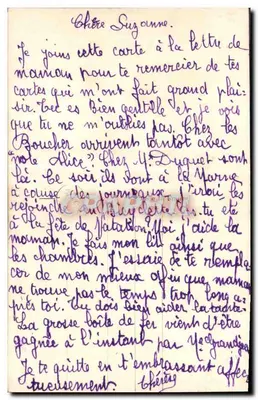 Chère Suzanne.
Je joins cette carte à la lettre de
maman pour te remercier de tes
cartes qui m'ont fait grand plai-
sir. Tu es bien gentille et je vois
que tu ne m'oublies pas. Chez les
Boucher arrivent tantôt avec
"note Alice". Chez M Duguet sont
là. Ce soir ils sont à la Varne
à cause de journaux. J'irai les
rejoindre tu été
à la fête de Natation. Moi j'aide la
maman. Je fais mon lit ainsi que
les chambres. J'essaie de te rempla-
cer de mon mieux afin que maman
ne trouve pas le temps trop long a-
près toi. Tu dois bien aider ta tante.
La grosse boîte de fer vient d'être
gagnée à l'instant par
Je te quitte en t'embrassant affec-
tueusement.
Thérèse